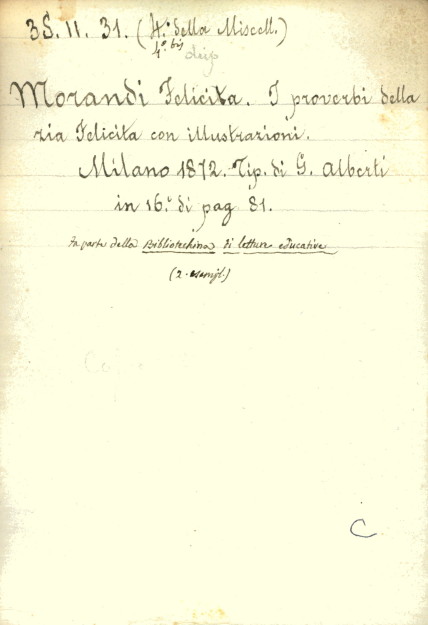 35. 11. 31. (4.° della Miscell.)
4.° bis
dup
Morandi Felicita. I proverbi della
zia Felicita con illustrazioni.
Milano 1872. Tip. di G. Alberti
in 16.° di pag 81.
Fa parte della Bibliotechina di letture educative
(2. esempl.)
C